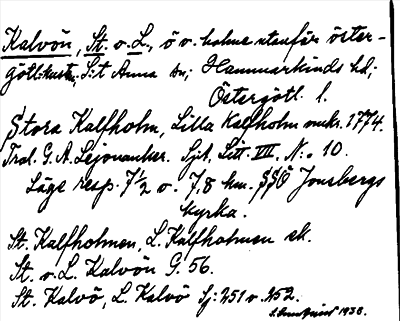 Kalvön, St. o. L., ö o. holme utanför öster-
götl. kusten, S:t Anna sn; Hammarkinds hd;
Östergötl. l.
Stora Kalfholm, Lilla Kalfholm 1774.
G. A. Lejonancker. Litt. VII. N:o 10.
Läge resp. 7 1/2 o. 7,8 km. SSÖ Jonsbergs
kyrka.
St. Kalfholmen, L. Kalfholmen ek.
St. o. L. Kalvön G. 56.
St. Kalvö, L. Kalvö Sj: 251 o. 252.
1938.